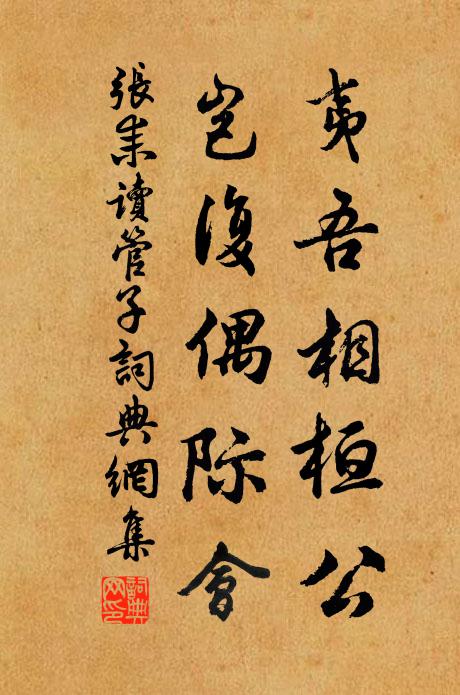 夷吾相桓公
岂復偶际會
張耒讀管子詞典網集
詞典網印